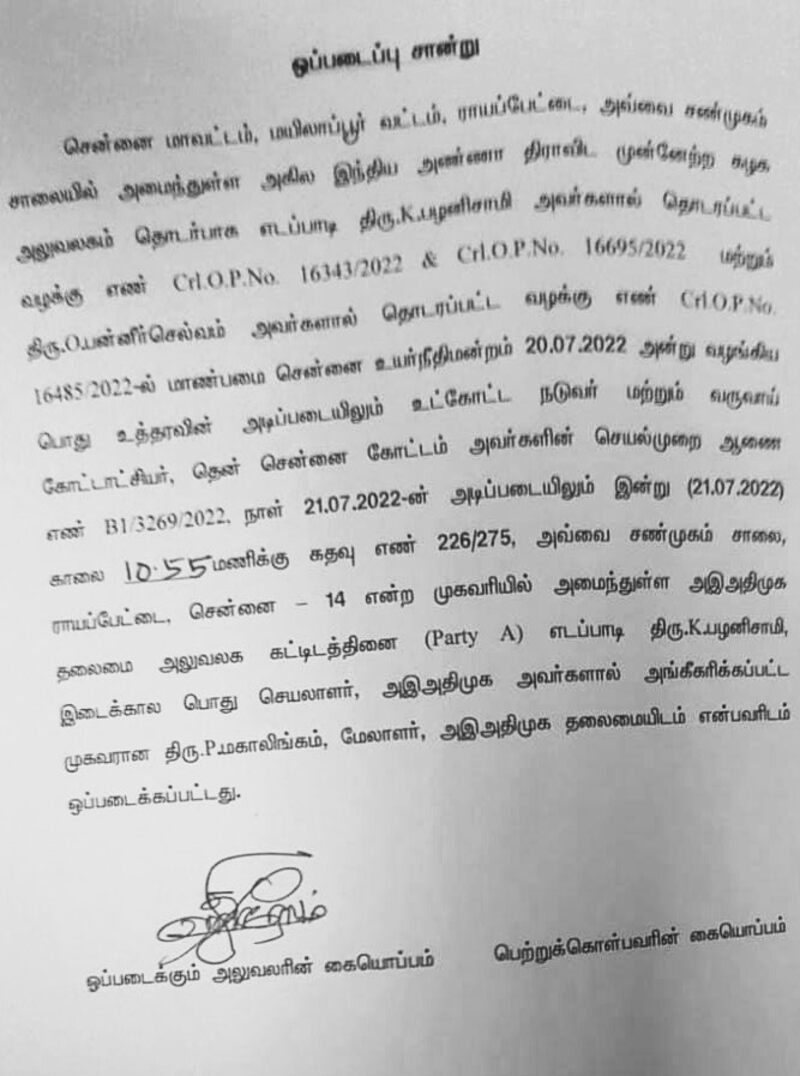 ஒப்படைப்பு சான்று
சென்னை மாவட்டம், மயிலாப்பூர் வட்டம், ராயப்பேட்டை, அவ்வை சண்முகம்
சாலையில் அமைந்துள்ள அகில இந்திய அண்ணா திராவிட முன்னேற்ற கழக
அலுவலகம் தொடர்பாக எடப்பாடி திரு.K.பழனிசாமி அவர்களால் தொடரப்பட்ட
வழக்கு எண் Crl.O.P.No. 16343/2022 & Crl.O.P.No. 16695/2022 மற்றும்
திரு.O.பன்னீர்செல்வம் அவர்களால் தொடரப்பட்ட வழக்கு எண் Crl.O.P.No.
16485/2022-ல் மாண்பமை சென்னை உயர்நீதிமன்றம் 20.07.2022 அன்று வழங்கிய
பொது உத்தரவின் அடிப்படையிலும் உட்கோட்ட நடுவர் மற்றும் வருவாய்
கோட்டாட்சியர், தென் சென்னை கோட்டம் அவர்களின் செயல்முறை ஆணை
எண் B1/3269/2022, நாள் 21.07.2022-ன் அடிப்படையிலும் இன்று (21.07.2022)
காலை 10.55 மணிக்கு கதவு எண் 226/275, அவ்வை சண்முகம் சாலை,
ராயப்பேட்டை, சென்னை – 14 என்ற முகவரியில் அமைந்துள்ள அஇஅதிமுக
தலைமை அலுவலக கட்டிடத்தினை (Party A) எடப்பாடி திரு.K.பழனிசாமி,
இடைக்கால பொது செயலாளர், அஇஅதிமுக அவர்களால் அங்கீகரிக்கப்பட்ட
முகவரான திரு.P.மகாலிங்கம், மேலாளர், அஇஅதிமுக தலைமையிடம் என்பவரிடம்
ஒப்படைக்கப்பட்டது.
ஒப்படைக்கும் அலுவலரின் கையொப்பம் பெற்றுக்கொள்பவரின் கையொப்பம்